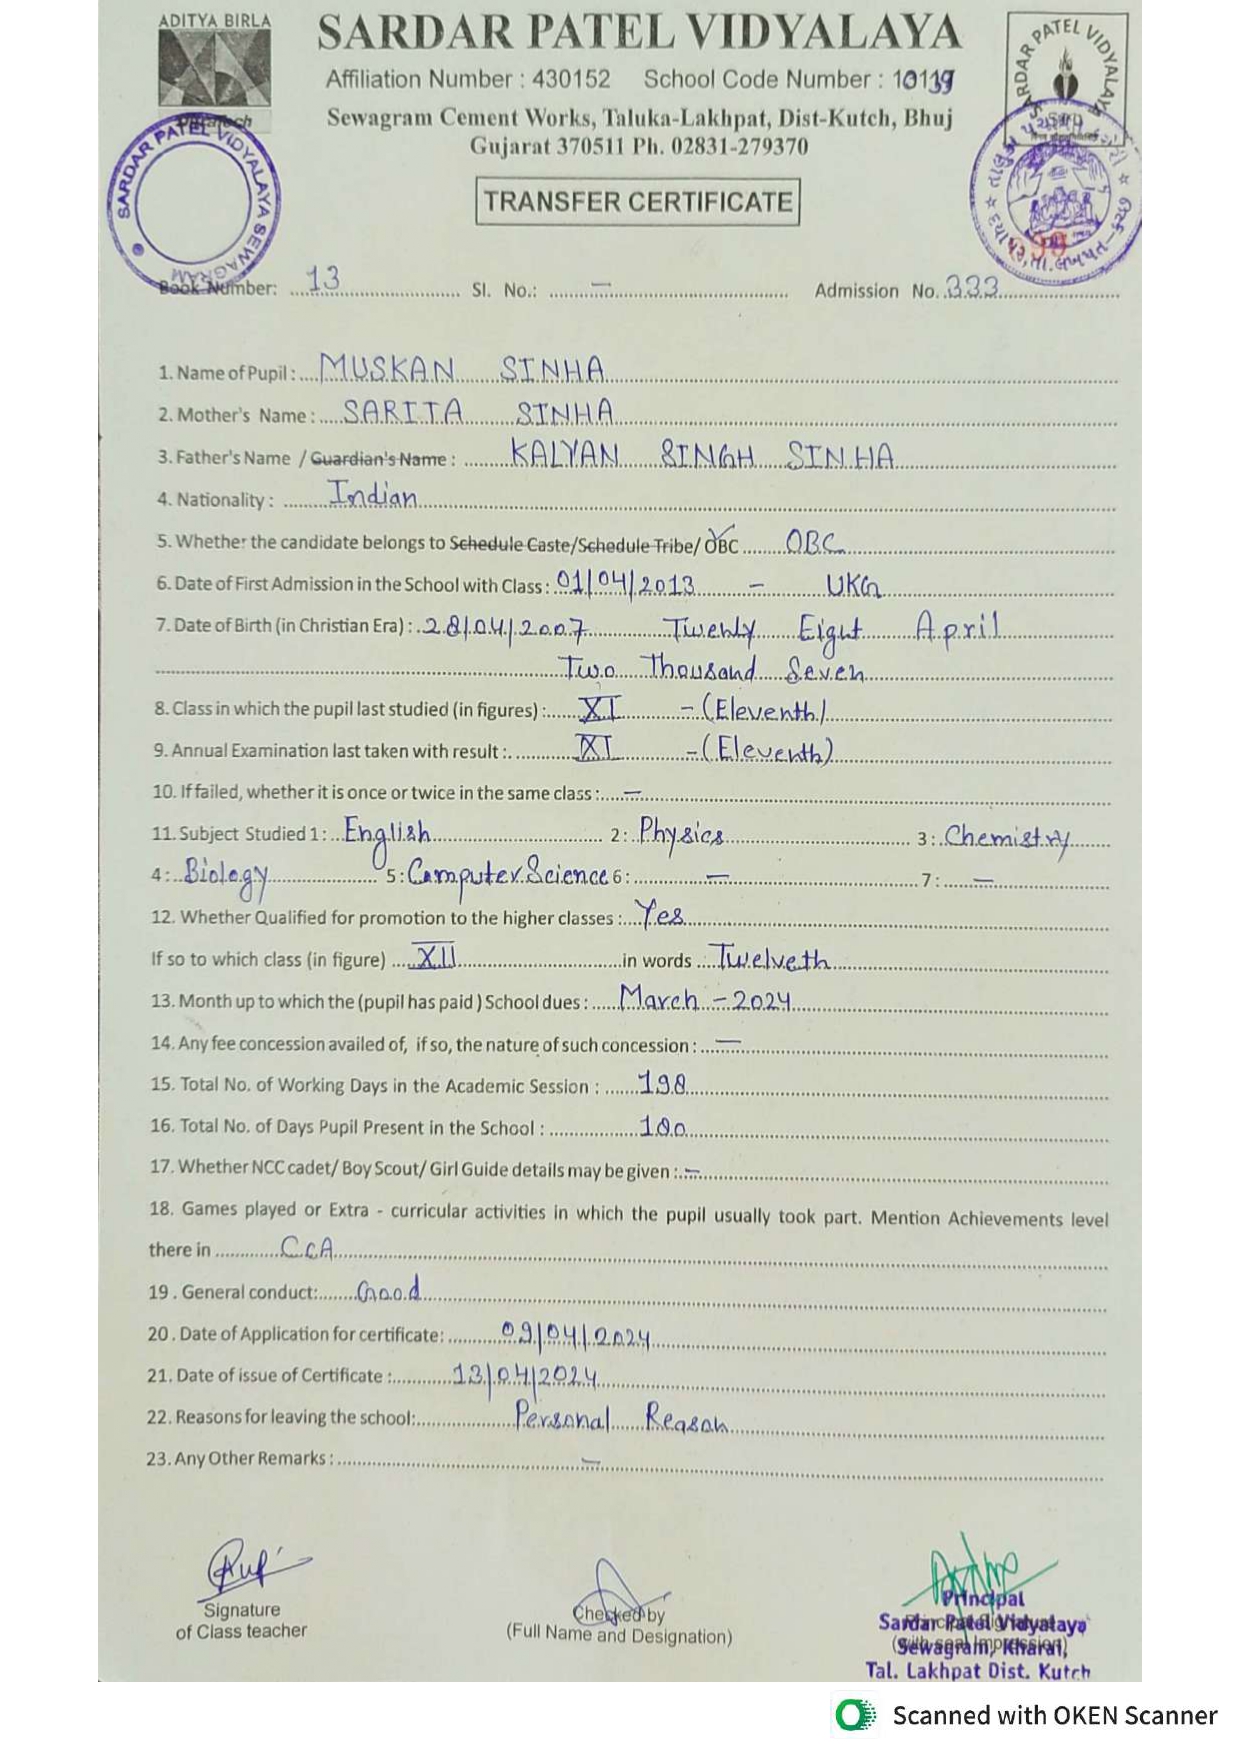 ADITYA BIRLA
SARDAR PATEL VIDYALAYA
Affiliation Number : 430152 School Code Number : 10119
Sewagram Cement Works, Taluka-Lakhpat, Dist-Kutch, Bhuj
Gujarat 370511 Ph. 02831-279370
SARDAR PATEL VIDYALAYA
SARDAR PATEL VIDYALAYA SEWAGRAM
TRANSFER CERTIFICATE
Book Number: 13 Sl. No.: — Admission No. 333
1. Name of Pupil : MUSKAN SINHA
2. Mother's Name : SARITA SINHA
3. Father's Name / Guardian's Name : KALYAN SINGH SINHA
4. Nationality : Indian
5. Whether the candidate belongs to Schedule Caste/Schedule Tribe/ OBC OBC
6. Date of First Admission in the School with Class : 01/04/2013 - UKG
7. Date of Birth (in Christian Era) : 28/04/2007 Twenty Eight April
Two Thousand Seven
8. Class in which the pupil last studied (in figures) : XI - (Eleventh)
9. Annual Examination last taken with result : XI - (Eleventh)
10. If failed, whether it is once or twice in the same class : —
11. Subject Studied 1 : English 2 : Physics 3 : Chemistry
4 : Biology 5 : Computer Science 6 : — 7 : —
12. Whether Qualified for promotion to the higher classes : Yes
If so to which class (in figure) XII in words Twelveth
13. Month up to which the (pupil has paid ) School dues : March - 2024
14. Any fee concession availed of, if so, the nature of such concession : —
15. Total No. of Working Days in the Academic Session : 198
16. Total No. of Days Pupil Present in the School :
17. Whether NCC cadet/ Boy Scout/ Girl Guide details may be given : —
18. Games played or Extra - curricular activities in which the pupil usually took part. Mention Achievements level
there in CCA
19 . General conduct: Good
20 . Date of Application for certificate: 09/04/2024
21. Date of issue of Certificate : 13/04/2024
22. Reasons for leaving the school: Personal Reason
23. Any Other Remarks : —
Signature
of Class teacher
Checked by
(Full Name and Designation)
Principal
Sardar Patel Vidyalaya
Sewagram, Kharai,
Tal. Lakhpat Dist. Kutch
Scanned with OKEN Scanner